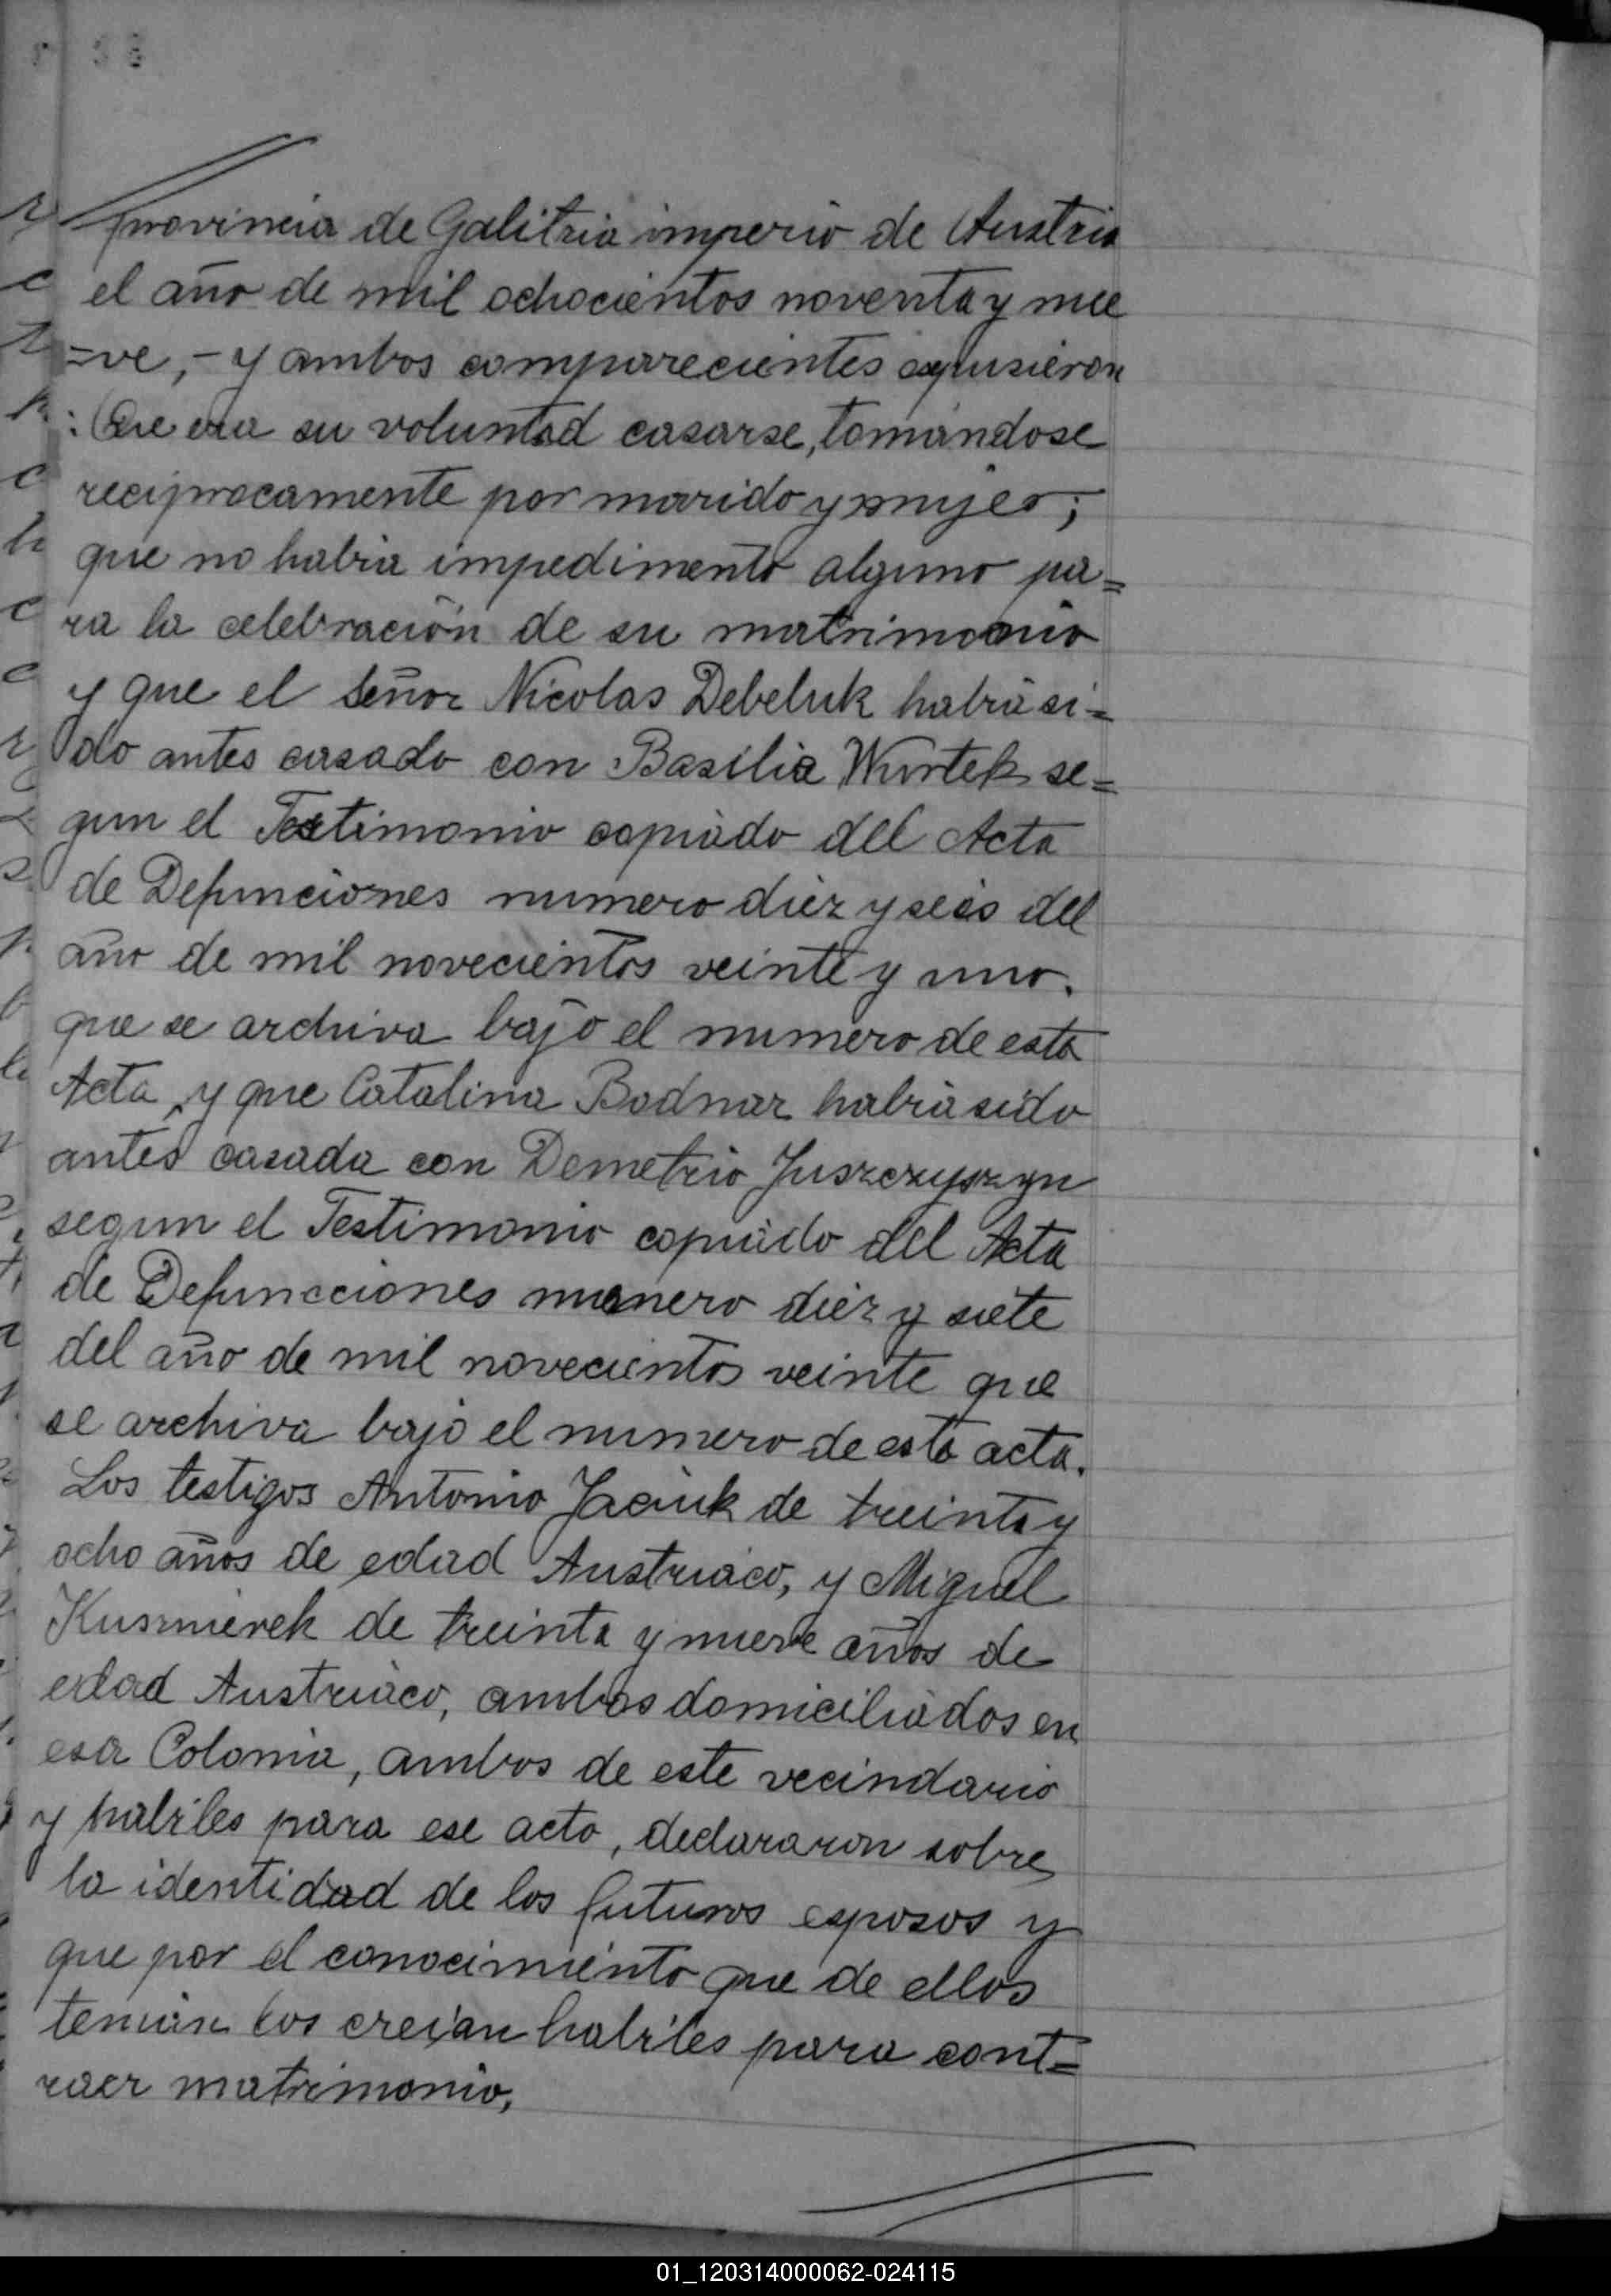 provincia de Galitzia imperio de Austria
el año de mil ochocientos noventa y nue
=ve, - y ambos comparecientes expusieron
: Que era su voluntad casarse, tomándose
reciprocamente por marido y mujer;
que no habia impedimento alguno pa=
ra la celebración de su matrimonio
y que el señor Nicolas Debeluk habia si=
do antes casado con Basilia Wurtek se=
gun el Testimonio copiado del Acta
de Defunciones numero diez y seis del
año de mil novecientos veinte y uno.
que se archiva bajo el numero de esta
Acta, y que Catalina Bodnar habia sido
antes casada con Demetrio Juszczyszyn
segun el Testimonio copiado del Acta
de Defuncciones numero diez y siete
del año de mil novecientos veinte que
se archiva bajo el numero de esta acta.
Los testigos Antonio Jaciuk de treinta y
ocho años de edad Austriaco, y Miguel
Kuszmierek de treinta y nueve años de
edad Austriaco, ambos domiciliados en
esa Colonia, ambos de este vecindario
y habiles para ese acto, declararon sobre
la identidad de los futuros esposos y
que por el conocimiento que de ellos
tenian los creian habiles para cont=
raer matrimonio,
01_120314000062-024115